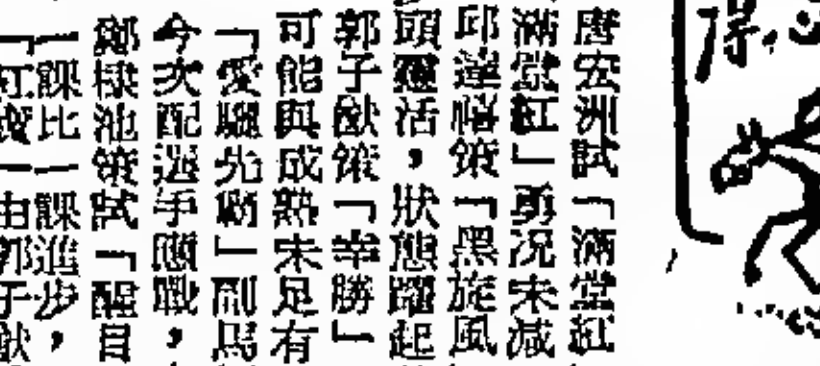 唐宏洲試「滿堂紅
滿堂紅」勇況未减
邱達僖策「黑旋風
頭靈活，狀態躍起
郭子猷策「幸勝」
可能與成熟未足有
「愛驪先劃」剛馬
今次配選手應戰，
鄭棣池策試「醒目
一課比一課進步，
「紅寶」由郭子猷